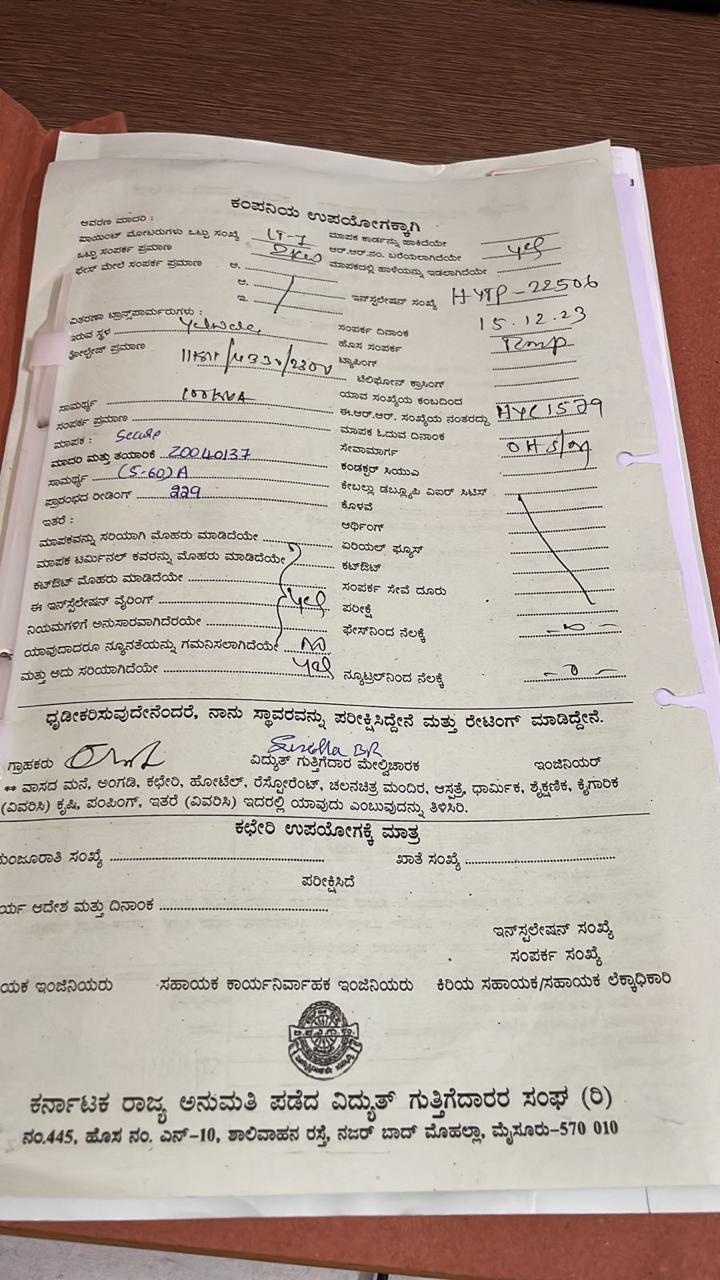 ಕಂಪನಿಯ ಉಪಯೋಗಕ್ಕಾಗಿ
ಆವರಣ ಮಾದರಿ :
ಪಾಯಿಂಟ್ ಮೋಟರುಗಳು ಒಟ್ಟು ಸಂಖ್ಯೆ LT-7 ಮಾಪಕ ಕಾರ್ಡನ್ನು ಹಾಕಿದೆಯೇ
ಒಟ್ಟು ಸಂಪರ್ಕ ಪ್ರಮಾಣ ಆರ್.ಆರ್.ನಂ. ಬರೆಯಲಾಗಿದೆಯೇ Yes
ಫೇಸ್ ಮೇಲೆ ಸಂಪರ್ಕ ಪ್ರಮಾಣ ಅ. ಮಾಪಕದಲ್ಲಿ ಹಾಳೆಯನ್ನು ಇಡಲಾಗಿದೆಯೇ
ಆ.
ಇ. ಇನ್‌ಸ್ಟಲೇಷನ್ ಸಂಖ್ಯೆ HYTP-22506
ವಿತರಣಾ ಟ್ರಾನ್ಸ್‌ಫಾರ್ಮರುಗಳು :
ಇರುವ ಸ್ಥಳ Yelwala, ಸಂಪರ್ಕ ದಿನಾಂಕ 15.12.23
ವೋಲ್ಟೇಜ್ ಪ್ರಮಾಣ 11KV/433V/230V ಹೊಸ ಸಂಪರ್ಕ
ಟ್ಯಾಪಿಂಗ್
ಟೆಲಿಫೋನ್ ಕ್ರಾಸಿಂಗ್
ಸಾಮರ್ಥ್ಯ 100KVA ಯಾವ ಸಂಖ್ಯೆಯ ಕಂಬದಿಂದ
ಸಂಪರ್ಕ ಪ್ರಮಾಣ ಈ.ಆರ್.ಆರ್. ಸಂಖ್ಯೆಯ ನಂತರದ್ದು HYC1579
ಮಾಪಕ : Secure ಮಾಪಕ ಓದುವ ದಿನಾಂಕ
ಮಾದರಿ ಮತ್ತು ತಯಾರಿಕೆ 20040137 ಸೇವಾಮಾರ್ಗ
ಸಾಮರ್ಥ್ಯ (5-60)A ಕಂಡಕ್ಟರ್ ಸಿಯುಎ
ಪ್ರಾರಂಭದ ರೀಡಿಂಗ್ 229 ಕೇಬಲ್ಲು ಡಬ್ಲ್ಯೂಪಿ ಏರ್ ಸಿಟಿಸ್
ಇತರೆ : ಕೊಳವೆ
ಮಾಪಕವನ್ನು ಸರಿಯಾಗಿ ಮೊಹರು ಮಾಡಿದೆಯೇ ಆರ್ಥಿಂಗ್
ಮಾಪಕ ಟರ್ಮಿನಲ್ ಕವರನ್ನು ಮೊಹರು ಮಾಡಿದೆಯೇ ಏರಿಯಲ್ ಫ್ಯೂಸ್
ಕಟ್‌ಔಟ್ ಮೊಹರು ಮಾಡಿದೆಯೇ ಕಟ್‌ಔಟ್
ಈ ಇನ್‌ಸ್ಟಲೇಷನ್ ವೈರಿಂಗ್ Yes ಸಂಪರ್ಕ ಸೇವೆ ದೂರು
ನಿಯಮಗಳಿಗೆ ಅನುಸಾರವಾಗಿದೆರಯೇ ಪರೀಕ್ಷೆ
ಯಾವುದಾದರೂ ನ್ಯೂನತೆಯನ್ನು ಗಮನಿಸಲಾಗಿದೆಯೇ No ಫೇಸ್‌ನಿಂದ ನೆಲಕ್ಕೆ - 0 -
ಮತ್ತು ಅದು ಸರಿಯಾಗಿದೆಯೇ Yes ನ್ಯೂಟ್ರಲ್‌ನಿಂದ ನೆಲಕ್ಕೆ - 0 -
ಧೃಡೀಕರಿಸುವುದೇನೆಂದರೆ, ನಾನು ಸ್ಥಾವರವನ್ನು ಪರೀಕ್ಷಿಸಿದ್ದೇನೆ ಮತ್ತು ರೇಟಿಂಗ್ ಮಾಡಿದ್ದೇನೆ.
ಗ್ರಾಹಕರು ವಿದ್ಯುತ್ ಗುತ್ತಿಗೆದಾರ ಮೇಲ್ವಿಚಾರಕ ಇಂಜಿನಿಯರ್
** ವಾಸದ ಮನೆ, ಅಂಗಡಿ, ಕಛೇರಿ, ಹೋಟೆಲ್, ರೆಸ್ಟೋರೆಂಟ್, ಚಲನಚಿತ್ರ ಮಂದಿರ, ಆಸ್ಪತ್ರೆ, ಧಾರ್ಮಿಕ, ಶೈಕ್ಷಣಿಕ, ಕೈಗಾರಿಕೆ
(ವಿವರಿಸಿ) ಕೃಷಿ, ಪಂಪಿಂಗ್, ಇತರೆ (ವಿವರಿಸಿ) ಇದರಲ್ಲಿ ಯಾವುದು ಎಂಬುವುದನ್ನು ತಿಳಿಸಿರಿ.
ಕಛೇರಿ ಉಪಯೋಗಕ್ಕೆ ಮಾತ್ರ
ಮಂಜೂರಾತಿ ಸಂಖ್ಯೆ ಖಾತೆ ಸಂಖ್ಯೆ
ಪರೀಕ್ಷಿಸಿದೆ
ರ್ಯ ಆದೇಶ ಮತ್ತು ದಿನಾಂಕ
ಇನ್‌ಸ್ಟಲೇಷನ್ ಸಂಖ್ಯೆ
ಸಂಪರ್ಕ ಸಂಖ್ಯೆ
ಯಕ ಇಂಜಿನಿಯರು ಸಹಾಯಕ ಕಾರ್ಯನಿರ್ವಾಹಕ ಇಂಜಿನಿಯರು ಕಿರಿಯ ಸಹಾಯಕ/ಸಹಾಯಕ ಲೆಕ್ಕಾಧಿಕಾರಿ
ಕರ್ನಾಟಕ ರಾಜ್ಯ ಅನುಮತಿ ಪಡೆದ ವಿದ್ಯುತ್ ಗುತ್ತಿಗೆದಾರರ ಸಂಘ (ರಿ)
ನಂ.445, ಹೊಸ ನಂ. ಎನ್-10, ಶಾಲಿವಾಹನ ರಸ್ತೆ, ನಜರ್ ಬಾದ್ ಮೊಹಲ್ಲಾ, ಮೈಸೂರು-570 010